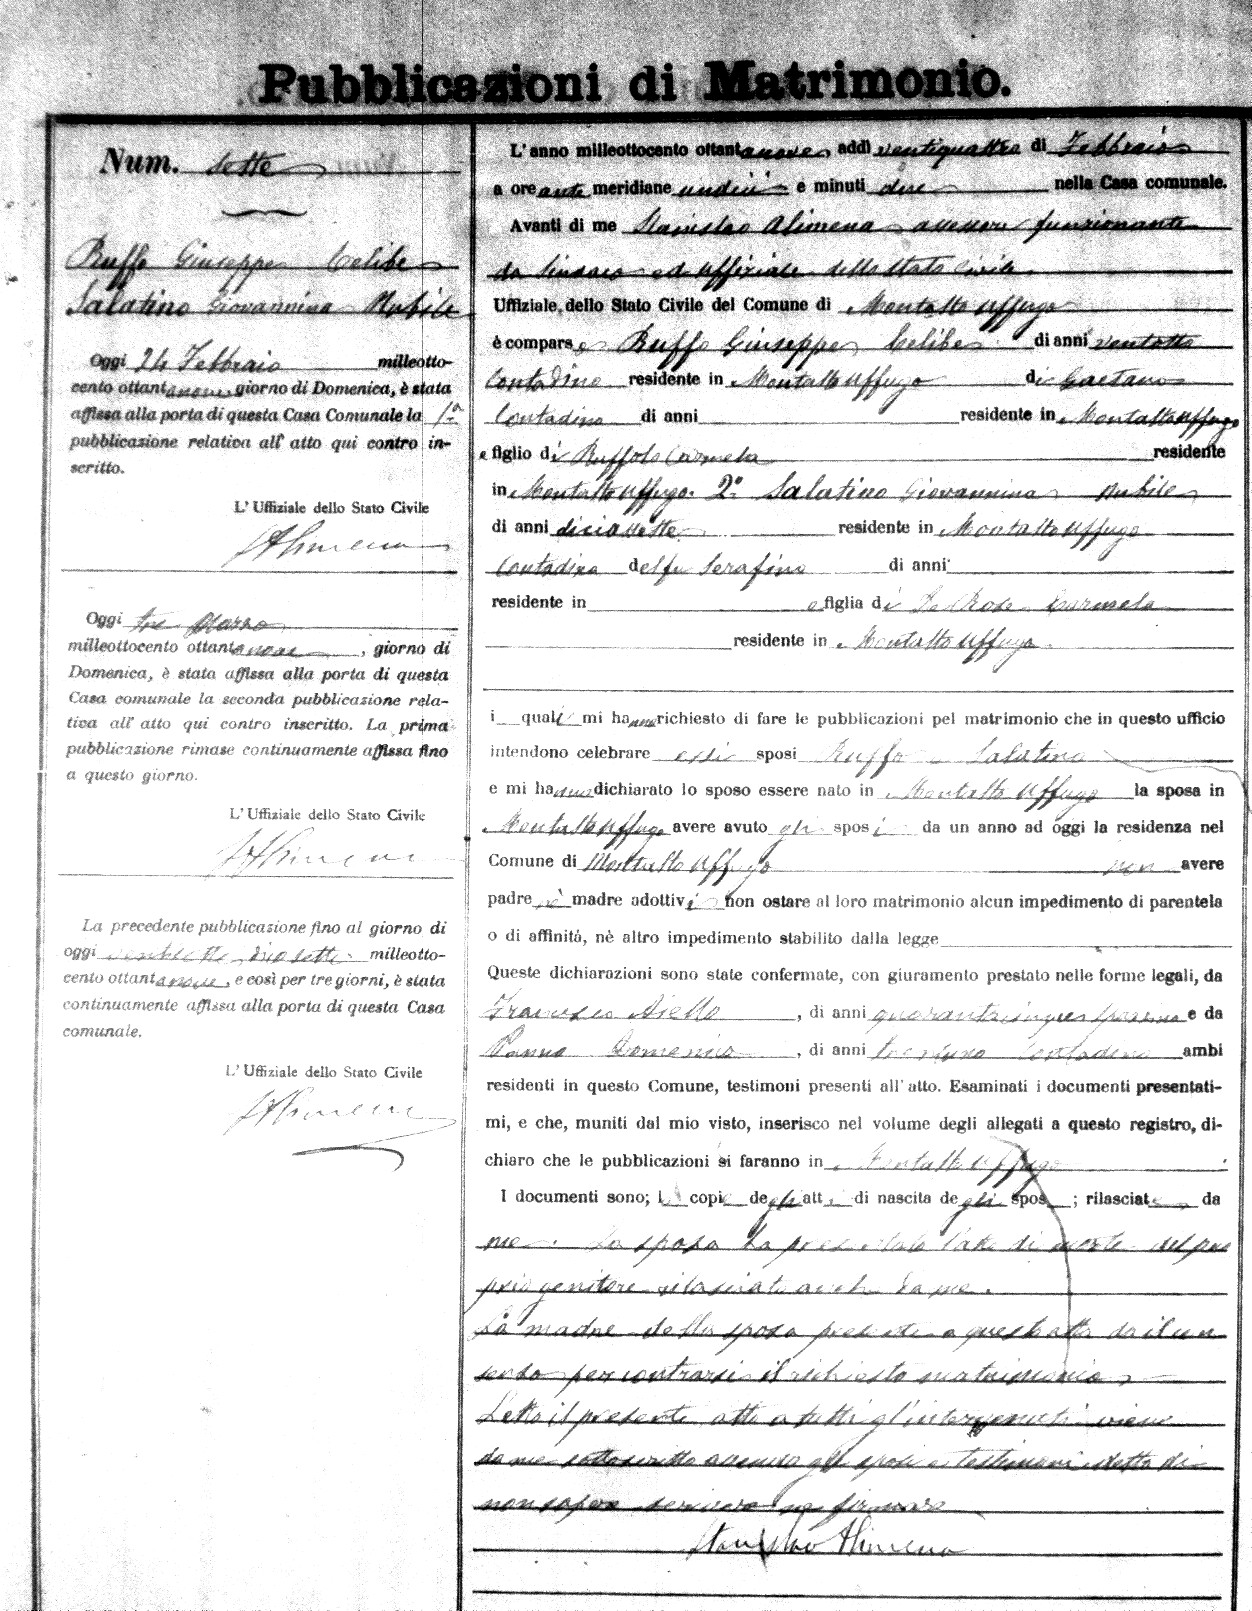 Pubblicazioni di Matrimonio.
Num. sette
Ruffo Giuseppe Celibe
Salatino Giovannina Nubile
Oggi 24 Febbraio milleotto-
cento ottantanove giorno di Domenica, è stata
affissa alla porta di questa Casa Comunale la 1a
pubblicazione relativa all' atto qui contro in-
scritto.
L' Uffiziale dello Stato Civile
SAlimena
Oggi tre Marzo
milleottocento ottantanove, giorno di
Domenica, è stata affissa alla porta di questa
Casa comunale la seconda pubblicazione rela-
tiva all' atto qui contro inscritto. La prima
pubblicazione rimase continuamente affissa fino
a questo giorno.
L' Uffiziale dello Stato Civile
SAlimena
La precedente pubblicazione fino al giorno di
oggi milleotto-
cento ottantanove, e così per tre giorni, è stata
continuamente affissa alla porta di questa Casa
comunale.
L' Uffiziale dello Stato Civile
SAlimena
L' anno milleottocento ottantanove, addì ventiquattro di Febbraio
a ore ante meridiane undici e minuti due nella Casa comunale.
Avanti di me Stanislao Alimena assessore funzionante
da Sindaco ed Uffiziale dello stato civile
Uffiziale dello Stato Civile del Comune di Montalto Uffugo
è compars Ruffo Giuseppe Celibe di anni ventotto
Contadino residente in Montalto Uffugo di Gaetano
Contadino di anni residente in Montalto Uffugo
e figlio di Ruffolo Carmela residente
in Montalto Uffugo. 2° Salatino Giovannina nubile
di anni diciassette residente in Montalto Uffugo
Contadina del fu Serafino di anni
residente in e figlia di De Rose Carmela
residente in Montalto Uffugo
i quali mi hanno richiesto di fare le pubblicazioni pel matrimonio che in questo ufficio
intendono celebrare essi sposi Ruffo e Salatino
e mi hanno dichiarato lo sposo essere nato in Montalto Uffugo la sposa in
Montalto Uffugo avere avuto gli sposi da un anno ad oggi la residenza nel
Comune di Montalto Uffugo non avere
padre nè madre adottivi non ostare al loro matrimonio alcun impedimento di parentela
o di affinità, nè altro impedimento stabilito dalla legge
Queste dichiarazioni sono state confermate, con giuramento prestato nelle forme legali, da
Francesco Aiello, di anni quarantacinque e da
Domenico, di anni contadino ambi
residenti in questo Comune, testimoni presenti all' atto. Esaminati i documenti presentati-
mi, e che, muniti dal mio visto, inserisco nel volume degli allegati a questo registro, di-
chiaro che le pubblicazioni si faranno in Montalto Uffugo.
I documenti sono; le copie degli atti di nascita degli spos; rilasciate da
me. La sposa ha presentato l'atto di morte del pro
prio genitore rilasciato anche da me.
La madre della sposa presente a quest'atto da il con
senso per contrarsi il richiesto matrimonio
Letto il presente atto a tutti gl'intervenuti viene
da me sottoscritto avendo gli sposi e testimoni detto di
non sapere scrivere ne firmare
Stanislao Alimena